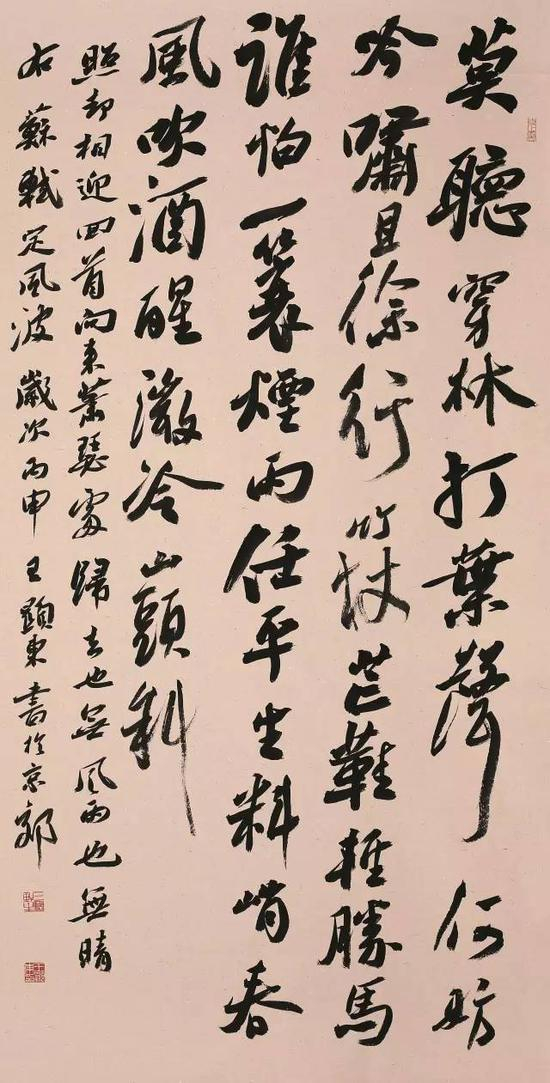 莫聽穿林打葉聲何妨
吟嘯且徐行竹杖芒鞋輕勝馬
誰怕一蓑煙雨任平生料峭春
風吹酒醒微冷山頭斜
照却相迎回首向來蕭瑟處歸去也無風雨也無晴
右蘇軾定風波歲次丙申王顯東書於京郊